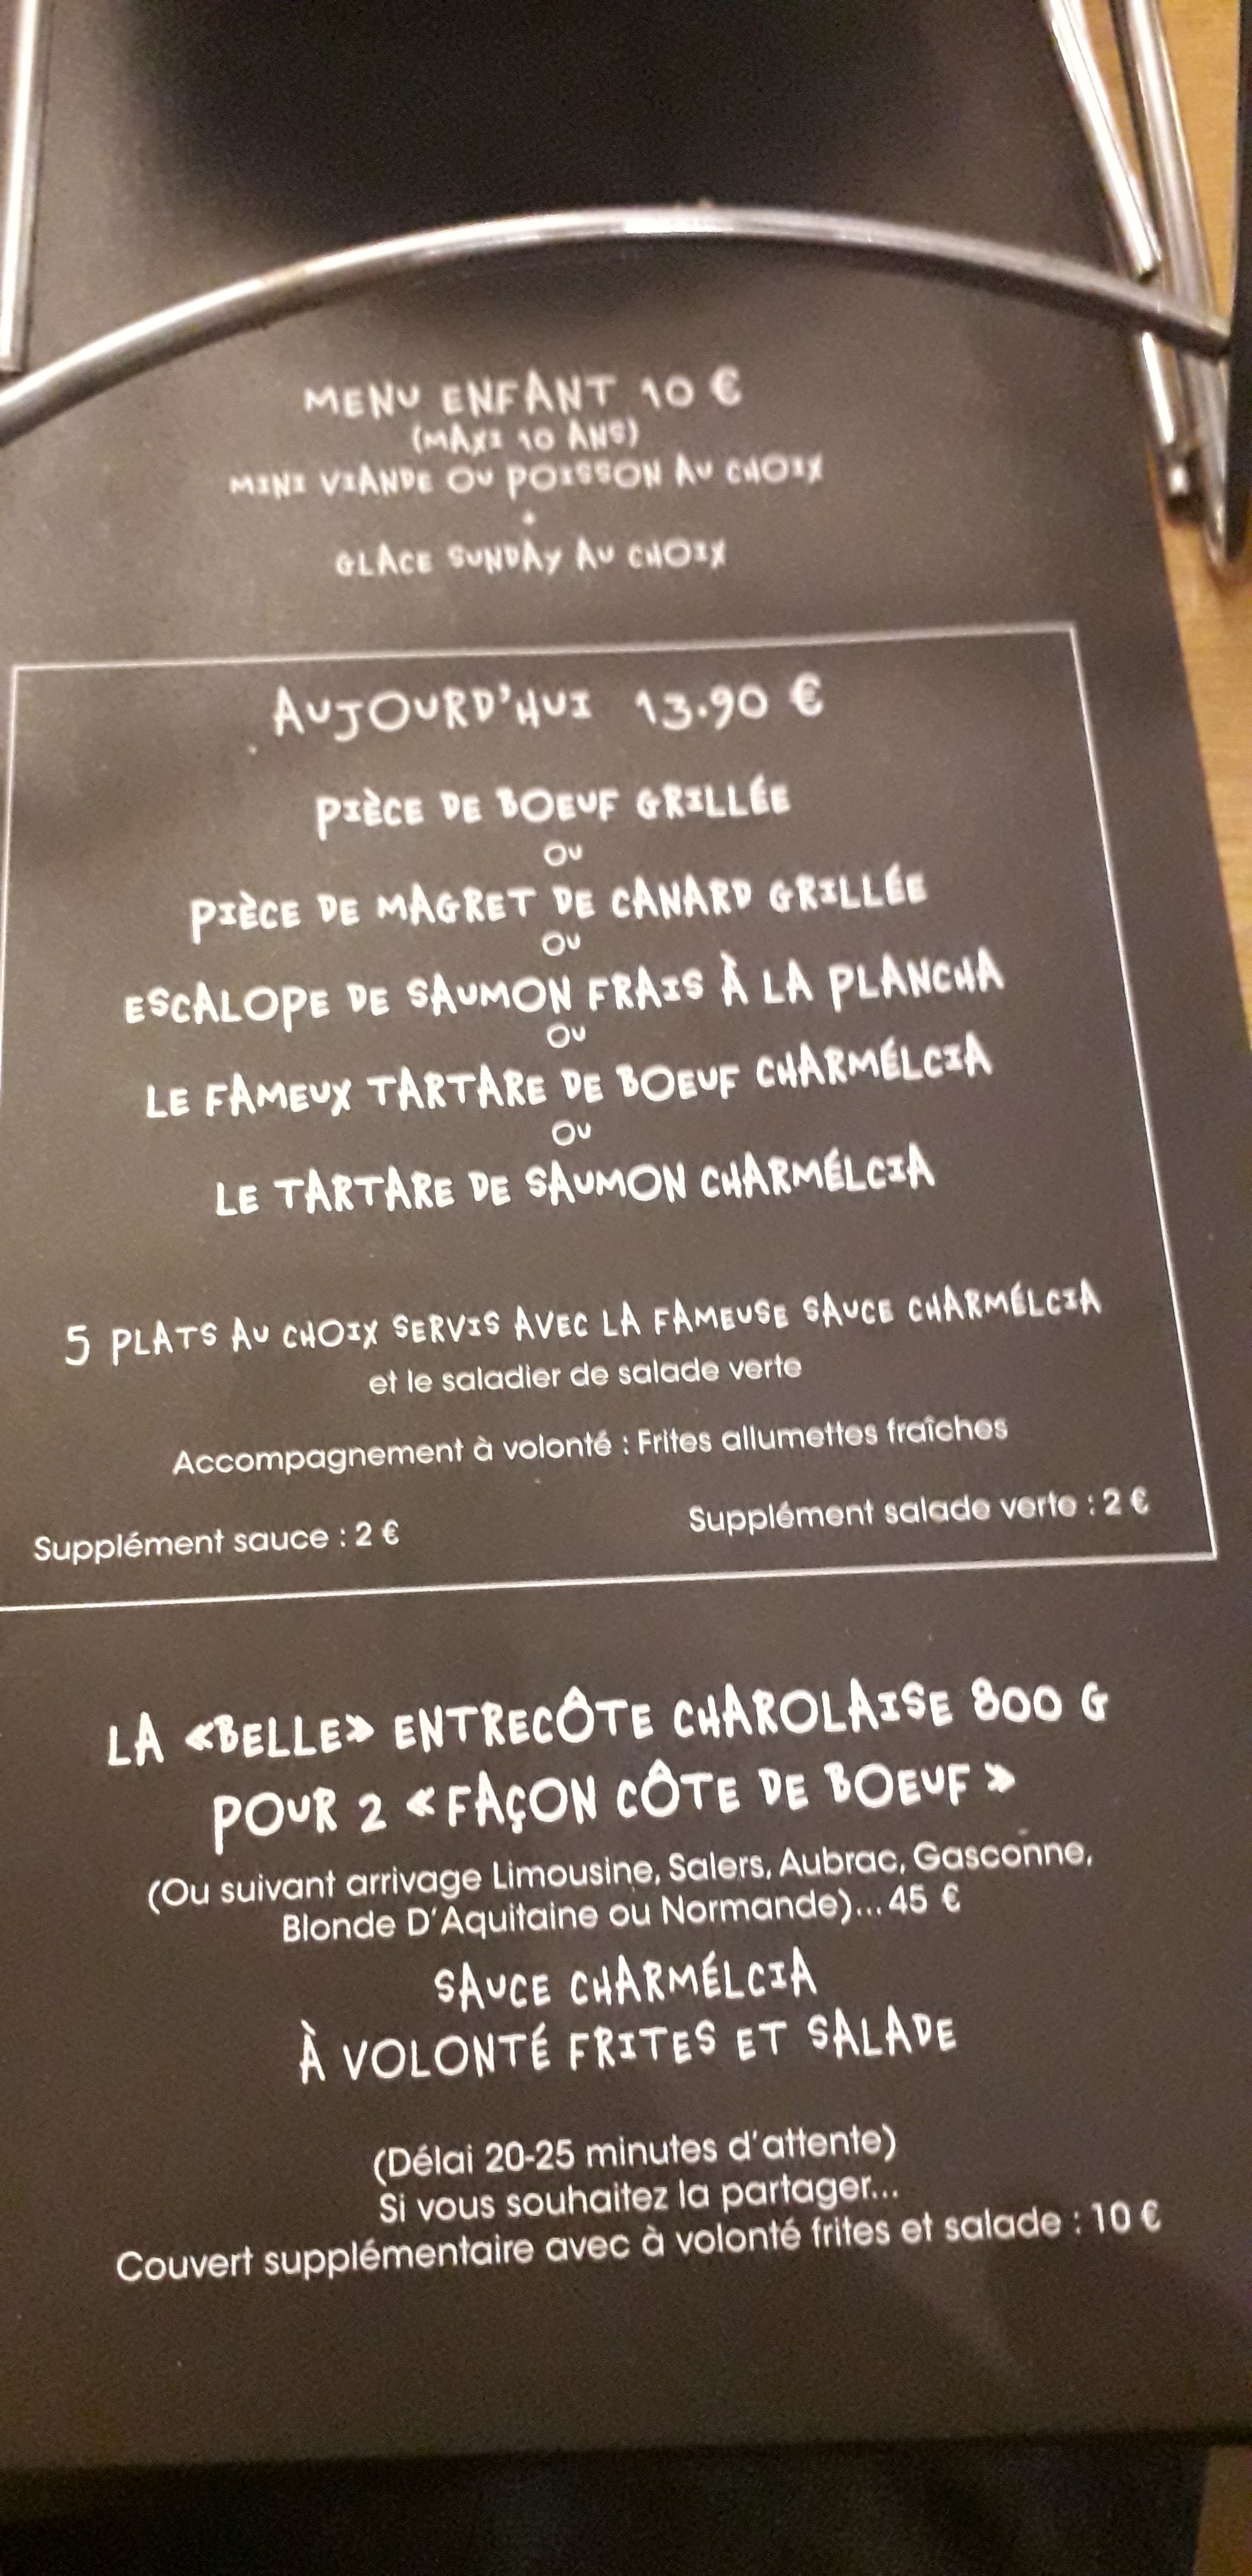 MENU ENFANT 10 €
(MAXI 10 ANS)
MINI VIANDE OU POISSON AU CHOIX
+
GLACE SUNDAY AU CHOIX
AUJOURD'HUI 13.90 €
PIÈCE DE BOEUF GRILLÉE
OU
PIÈCE DE MAGRET DE CANARD GRILLÉE
OU
ESCALOPE DE SAUMON FRAIS À LA PLANCHA
OU
LE FAMEUX TARTARE DE BOEUF CHARMÉLCIA
OU
LE TARTARE DE SAUMON CHARMÉLCIA
5 PLATS AU CHOIX SERVIS AVEC LA FAMEUSE SAUCE CHARMÉLCIA
et le saladier de salade verte
Accompagnement à volonté : Frites allumettes fraîches
Supplément sauce : 2 € Supplément salade verte : 2 €
LA «BELLE» ENTRECÔTE CHAROLAISE 800 G
POUR 2 « FAÇON CÔTE DE BOEUF »
(Ou suivant arrivage Limousine, Salers, Aubrac, Gasconne,
Blonde D'Aquitaine ou Normande)... 45 €
SAUCE CHARMÉLCIA
À VOLONTÉ FRITES ET SALADE
(Délai 20-25 minutes d'attente)
Si vous souhaitez la partager...
Couvert supplémentaire avec à volonté frites et salade : 10 €